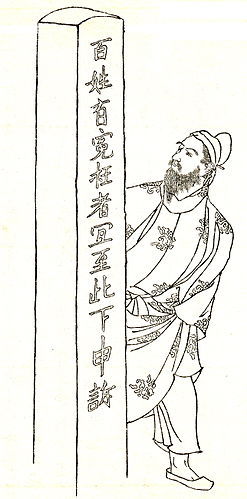 百姓百寃枉者冝至此下申訴